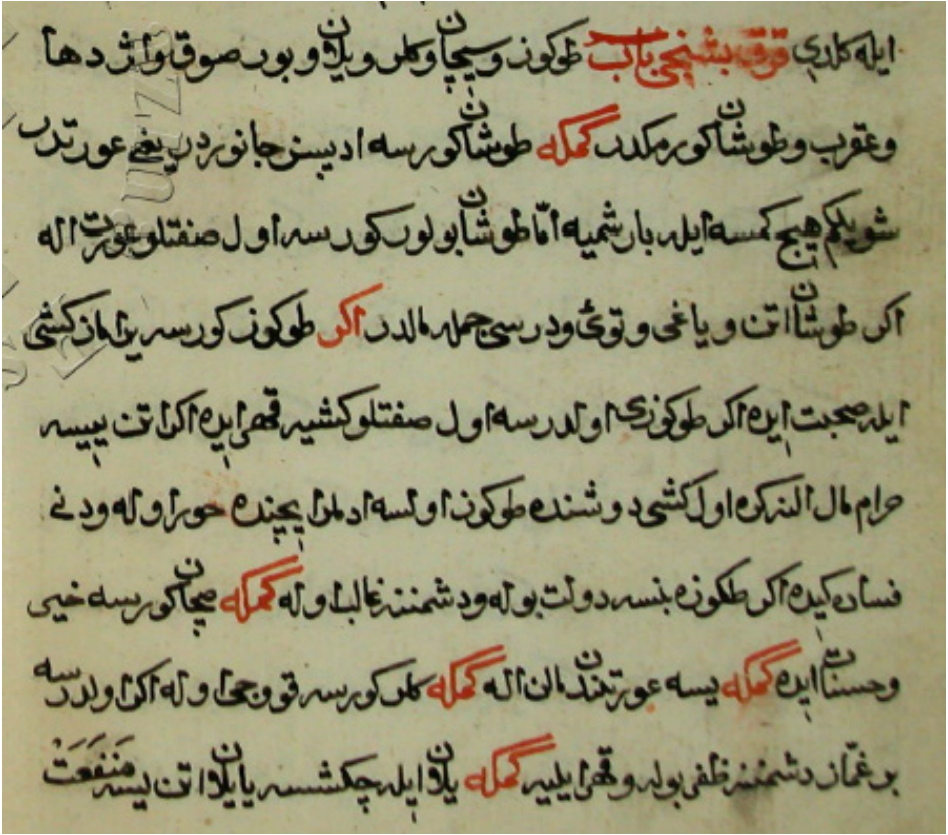 ايله كلدى قرق بشنجى باب طوكوز و سيچان و كلر و يلان و بور صوق و اژدها
و عقرب و طوشان كورمكدر كمكه طوشان كورسه اديسز جانوردر يعنى عورتدر
شويلكم هيچ كمسه ايله بارشميه امّا طوشان بولور كورسه اول صفتلو عورت اله
اكر طوشان اتن و ياغى و توئ و درسى جمله مالدر اكر طوكوز كورسه يرامان كشى
ايله صحبت ايده اكر طوكوزى اولدرسه اول صفتلو كشيه قهر ايده اكر اتن ييسه
حرام مال النه كره اول كشى دوشنده طوكوز اولسه ادملر ايچنده خور اوله و دنى
فساده كيده اكر طكوزه بنسه دولت بوله و دشمننه غالب اوله كمكه صچان كورسه خيى
و حسنات ايده كمكه ييسه عورتندن مالن اله كمكه كلر كورسه قووجى اوله اكر اولدرسه
بر غمّاز دشمننه ظفى بوله و قهر ايليه كمكه يلان ايله چكشسه يا يلان اتن ييسه مَنفَعَتْ